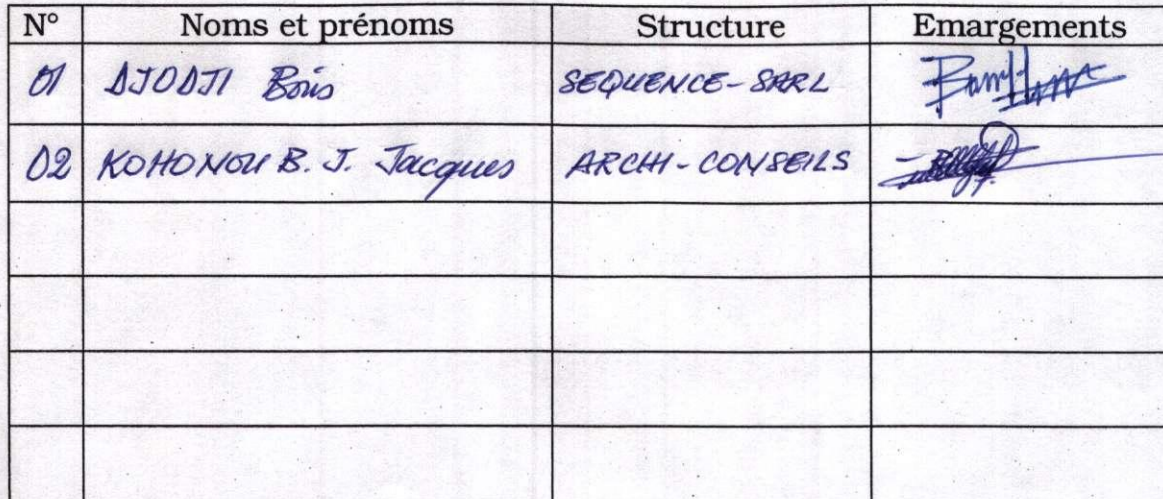 N° Noms et prénoms Structure Emargements
01 DJODJI Boris SEQUENCE-SARL
02 KOHONOU B. J. Jacques ARCHI-CONSEILS